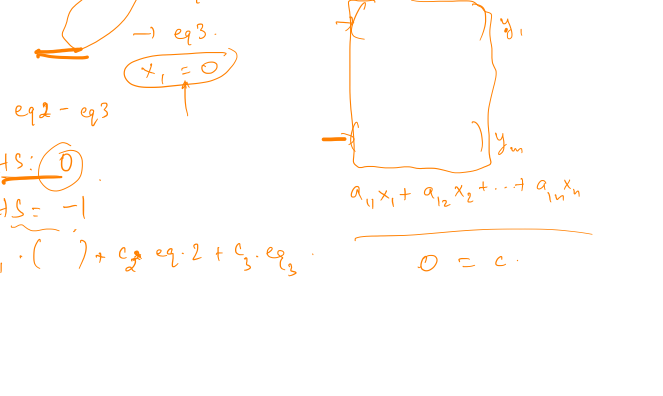 → eq3.
x₁ = 0
eq2 - eq3
HS: 0
HS = -1
· ( ) + c₂ eq.2 + c₃.eq₃ .
y₁
yₘ
a₁₁x₁ + a₁₂x₂ + ... + a₁ₙxₙ
0 = c.